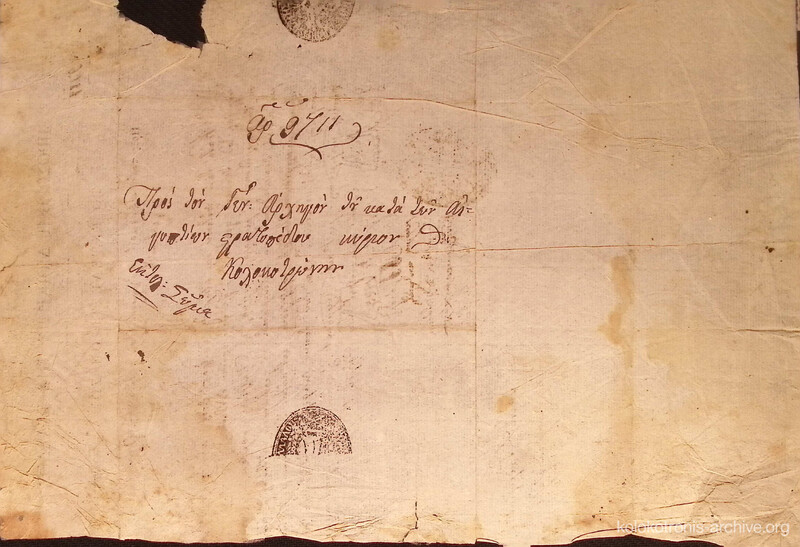 ἀρ 9711
Πρὸς τὸν Γεν: Ἀρχηγὸν τοῦ κατὰ τῶν Αἰ-
γυπτίων στρατοπέδου κύριον Θ
Κολοκοτρώνην
kolokotronis-archive.org